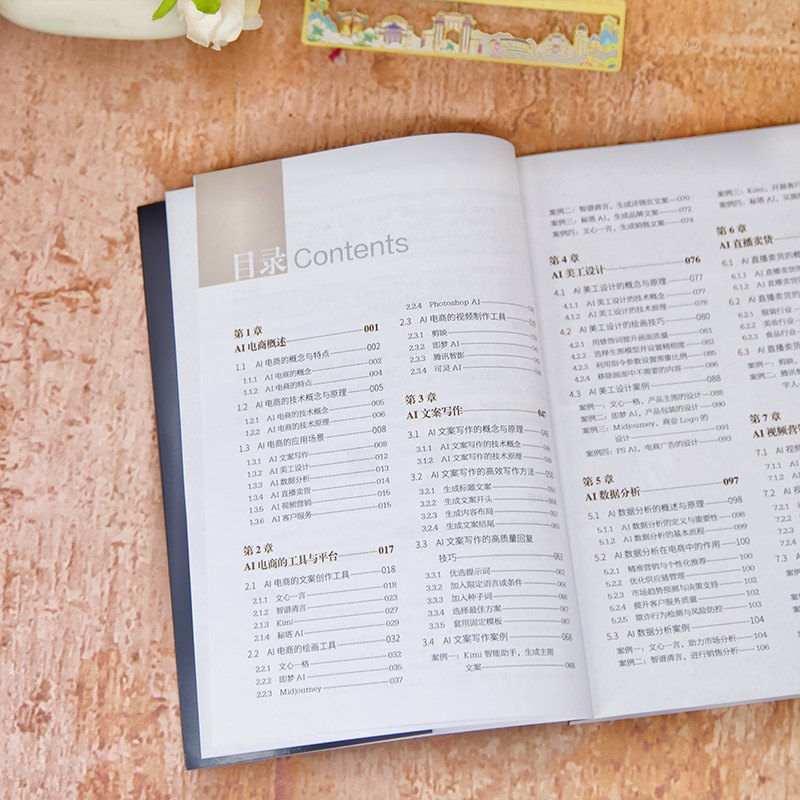 目录 Contents
第 1 章
AI 电商概述 001
1.1 AI 电商的概念与特点 002
1.1.1 AI 电商的概念 002
1.1.2 AI 电商的特点 004
1.2 AI 电商的技术概念与原理 005
1.2.1 AI 电商的技术概念 005
1.2.2 AI 电商的技术原理 006
1.3 AI 电商的应用场景 008
1.3.1 AI 文案写作 008
1.3.2 AI 美工设计 012
1.3.3 AI 数据分析 013
1.3.4 AI 直播卖货 014
1.3.5 AI 视频营销 015
1.3.6 AI 客户服务 015
第 2 章
AI 电商的工具与平台 017
2.1 AI 电商的文案创作工具 018
2.1.1 文心一言 018
2.1.2 智谱清言 023
2.1.3 Kimi 027
2.1.4 秘塔 AI 029
2.2 AI 电商的绘画工具 032
2.2.1 文心一格 032
2.2.2 即梦 AI 035
2.2.3 Midjourney 037
2.2.4 Photoshop AI
2.3 AI 电商的视频制作工具
2.3.1 剪映
2.3.2 即梦 AI
2.3.3 腾讯智影
2.3.4 可灵 AI
第 3 章
AI 文案写作 047
3.1 AI 文案写作的概念与原理
3.1.1 AI 文案写作的技术概念
3.1.2 AI 文案写作的技术原理
3.2 AI 文案写作的高效写作方法
3.2.1 生成标题文案
3.2.2 生成文案开头
3.2.3 生成内容布局
3.2.4 生成文案结尾
3.3 AI 文案写作的高质量回复
技巧
3.3.1 优选提示词
3.3.2 加入限定语言或条件
3.3.3 加入种子词
3.3.4 选择最佳方案
3.3.5 套用固定模板
3.4 AI 文案写作案例 068
案例一：Kimi 智能助手，生成主图
文案 068
案例二：智谱清言，生成详情页文案 070
案例三：秘塔 AI，生成品牌文案 072
案例四：文心一言，生成销售文案 074
第 4 章
AI 美工设计 076
4.1 AI 美工设计的概念与原理 077
4.1.1 AI 美工设计的技术概念 077
4.1.2 AI 美工设计的技术原理 078
4.2 AI 美工设计的绘画技巧 080
4.2.1 用修饰词提升画面质量 081
4.2.2 选择生图模型并设置精细度 082
4.2.3 利用指令参数设置图像比例 085
4.2.4 移除画面中不需要的内容 086
4.3 AI 美工设计案例 088
案例一：文心一格，产品主图的设计 088
案例二：即梦 AI，产品包装的设计 090
案例三：Midjourney，商业 Logo 的
设计 091
案例四：PS AI，电商广告的设计 093
第 5 章
AI 数据分析 097
5.1 AI 数据分析的概述与原理 098
5.1.1 AI 数据分析的定义与重要性 098
5.1.2 AI 数据分析的基本流程 099
5.2 AI 数据分析在电商中的作用 100
5.2.1 精准营销与个性化推荐 100
5.2.2 优化供应链管理 100
5.2.3 市场趋势预测与决策支持 102
5.2.4 提升客户服务质量 102
5.2.5 欺诈行为检测与风险防控 103
5.3 AI 数据分析案例 104
案例一：文心一言，助力市场分析 104
案例二：智谱清言，进行销售分析 106
案例三：Kimi，开展客户
案例四：秘塔 AI，实施
第 6 章
AI 直播卖货
6.1 AI 直播卖货的概
6.1.1 AI 直播卖货
6.1.2 AI 直播卖货
6.2 AI 直播卖货的
6.2.1 服装行业
6.2.2 美妆行业
6.2.3 食品行业
6.3 AI 直播卖货
案例一：剪映，
案例二：腾讯智
字人
第 7 章
AI 视频营
7.1 AI 视
7.1.1 AI
7.1.2
7.2 AI
7.2.1
7.2.2
7.2.3
7.2.4